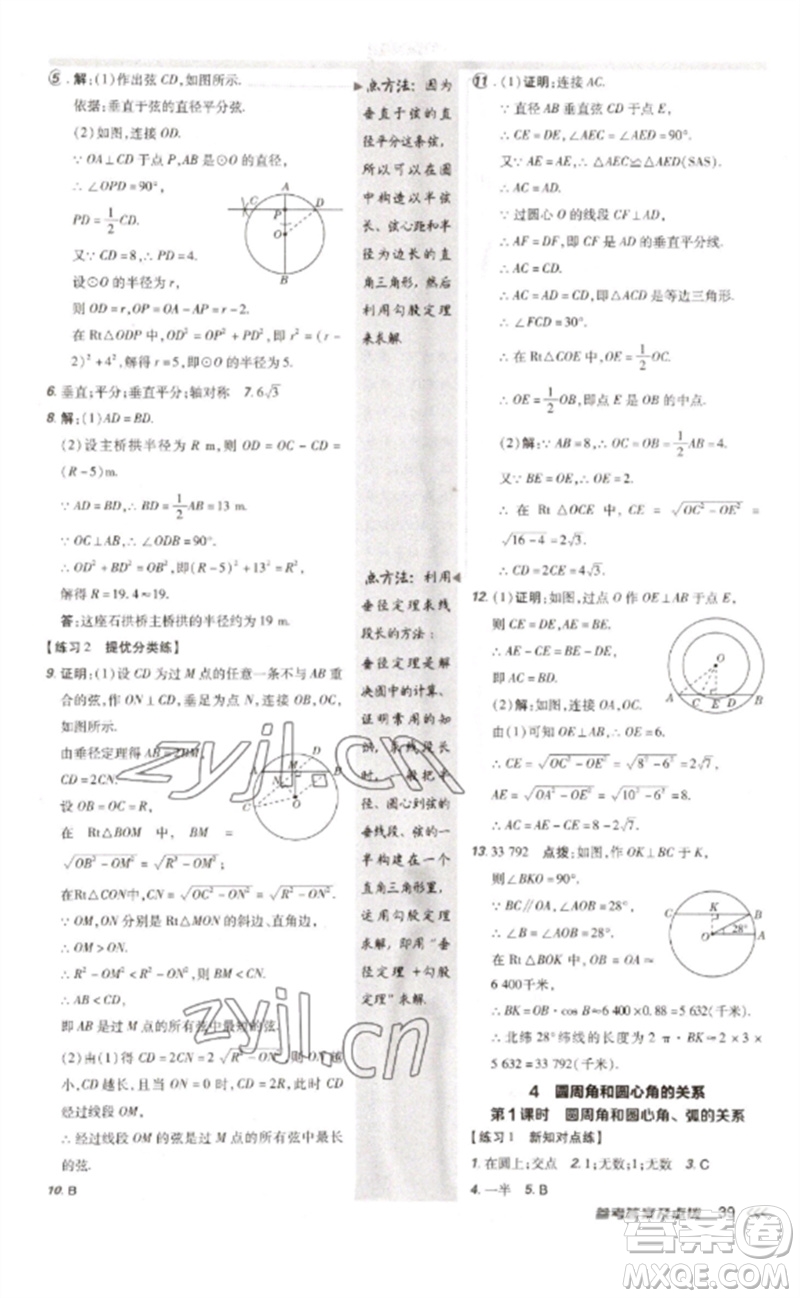 5. 解:(1)作出弦CD,如图所示.
依据:垂直于弦的直径平分弦.
(2)如图,连接OD.
∵OA⊥CD于点P,AB是⊙O的直径,
∴∠OPD=90°,
PD=1/2CD.
又∵CD=8,∴PD=4.
设⊙O的半径为r,
则OD=r,OP=OA-AP=r-2.
在Rt△ODP中,OD²=OP²+PD²,即r²=(r-
2)²+4²,解得r=5,即⊙O的半径为5.
6. 垂直;平分;垂直平分;轴对称 7. 6√3
8. 解:(1)AD=BD.
(2)设主桥拱半径为R m,则OD=OC-CD=
(R-5)m.
∵AD=BD,∴BD=1/2AB=13 m.
∵OC⊥AB,∴∠ODB=90°.
∴OD²+BD²=OB²,即(R-5)²+13²=R².
解得R=19.4≈19.
答:这座石拱桥主桥拱的半径约为19 m.
【练习2 提优分类练】
9. 证明:(1)设CD为过M点的任意一条不与AB重
合的弦,作ON⊥CD,垂足为N,连接OB,OC,
如图所示.
由垂径定理得AB=2BM,
CD=2CN.
设OB=OC=R.
在Rt△BOM中,BM=
√(OB²-OM²)=√(R²-OM²).
在Rt△CON中,CN=√(OC²-ON²)=√(R²-ON²).
∵OM,ON分别是Rt△MON的斜边、直角边,
∴OM>ON.
∴R²-OM²<R²-ON².
∴AB<CD.
即AB是过M点的所有弦中最短的弦.
(2)由(1)得CD=2CN=2√(R²-ON²),ON越
小,CD越长,当ON=0时,CD=2R,CD最大.
∴经过线段OM的弦是过M点的所有弦中最长
的弦.
10. B
点方法:因为
垂直于弦的直
径平分这条弦,
所以可以在圆
中构造以半弦
长、弦心距和半
径为边长的直
角三角形,然后
利用勾股定理
来求解.
点方法:利用
垂径定理求线
段长的方法:
垂径定理是解
决圆中的计算、
证明常用的知
识,求线段长
时,一般把半
径、圆心到弦的
垂线段、弦的一
半构建在一个
直角三角形里,
运用勾股定理
求解,即用“垂
径定理+勾股
定理”求解.
11. (1)证明:连接AC.
∵直径AB垂直弦CD于点E,
∴CE=DE,∠AEC=∠AED=90°.
又∵AE=AE,∴△AEC≌△AED(SAS).
∴AC=AD.
∵过圆心O的线段CF⊥AD,
∴AF=DF,即CF是AD的垂直平分线.
∴AC=CD.∴AC=AD=CD,即△ACD是等边三角形.
∴∠FCD=30°.
∴在Rt△COE中,OE=1/2OC.
∴OE=1/2OB,即点E为OB的中点.
(2)解:∵AB=8,∴OC=OB=1/2AB=4.
又∵BE=OE,∴OE=2.
∴在Rt△OCE中,CE=√(OC²-OE²)=
√(16-4)=2√3.
∴CD=2CE=4√3.
12. (1)证明:如图,过点O作OE⊥AB于点E,则
CE=DE,AE=BE.
∴AE-CE=BE-DE,
即AC=BD.
(2)解:如图,连接OA,OC.
由(1)可知OE⊥AB,∴OE=6.
∴CE=√(OC²-OE²)=√(8²-6²)=2√7,
AE=√(OA²-OE²)=√(10²-6²)=8.
∴AC=AE-CE=8-2√7.
13. 33 792 点拨:如图,作OK⊥BC于K,
则∠BKO=90°.
∵BC∥OA,∠AOB=28°,
∴∠B=∠AOB=28°.
∵在Rt△BOK中,OB=
6 400千米,
∴BK=OB·cos B≈6 400×0.88=5 632(千米).
∴北纬28°纬线的长度为2·π·BK≈2×3×
5 632=33 792(千米).
4 圆周角和圆心角的关系
第1课时 圆周角和圆心角、弧的关系
【练习1 新知对点练】
1. 在圆上;交点 2. 1;无数;1;无数 3. C
4. 一半 5. B
参考答案及点拨 39
zyjl.cn
zyjl.cn
作业答案卷
MXQE.COM